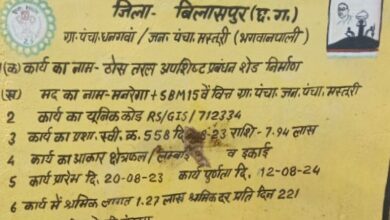 जिला- बिलासपुर (छ.ग.)
ग्रा.पंचा. धनगवां / जन. पंचा. मस्तूरी (भगवानपाली)
(क) कार्य का नाम- ठोस तरल अपशिष्ट प्रबंधन शेड निर्माण
(ख) मद का नाम- मनरेगा + SBM 15 वें वित्त ग्रा. पंचा. जन. पंचा. मस्तूरी
2 कार्य का यूनिक कोड RS/GIS/712334
3 कार्य का प्रशा. स्वी. क्र. 558 दि 8-23 राशि- 7.94 लाख
4 कार्य का आकार क्षेत्रफल / लम्बाई व इकाई
5 कार्य प्रारंभ दि. 20-08-23 कार्य पूर्णता दि. 12-08-24
6 कार्य में श्रमिक लागत 1.27 लाख श्रमिक दर प्रति दिन 221